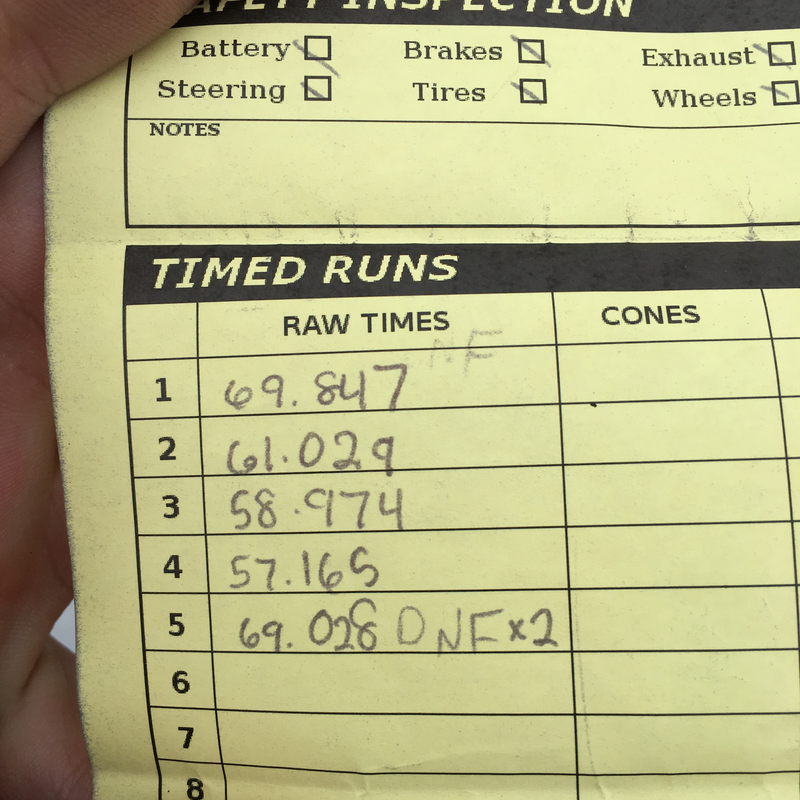 SAFETY INSPECTION
Battery Brakes Exhaust
Steering Tires Wheels
NOTES
TIMED RUNS
RAW TIMES CONES
NF
1 69.847
2 61.029
3 58.974
4 57.165
5 69.028 DNF x2
6
7
8